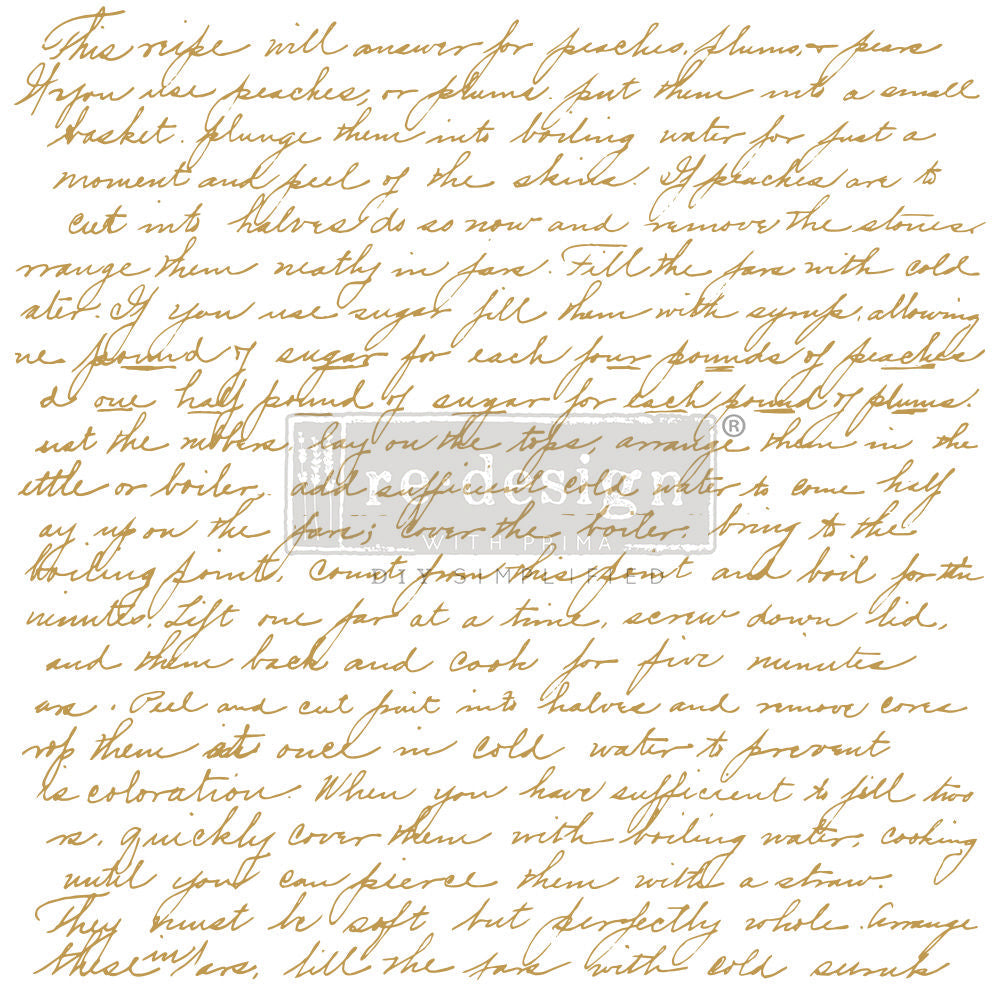 This reipe will answer for peaches, plums, & pears
If you use peaches, or plums. put them into a small
basket. plunge them into boiling water for just a
moment and peel of the skins. If peaches are to
cut into halves do so now and remove the stones.
rrange them neatly in jars. Fill the jars with cold
ater. If you use sugar fill them with syrup, allowing
ne pound of sugar for each four pounds of peaches
d one half pound of sugar for each pound of plums.
ust the rubbers, lay on the tops, arrange them in the
ettle or boiler, add sufficient cold water to come half
ay up on the jars; cover the boiler, bring to the
boiling point, count from this point and boil for ten
minutes. Lift one jar at a time, screw down lid,
and them back and cook for five minutes
ars. Peel and cut fruit into halves and remove cores
rop them at once in cold water to prevent
is coloration. When you have sufficient to fill two
rs, quickly cover them with boiling water, cooking
until you can pierce them with a straw.
They must be soft but perfectly whole. Arrange
these in jars, fill the jars with cold
re·design®
WITH PRIMA
DIY SIMPLIFIED